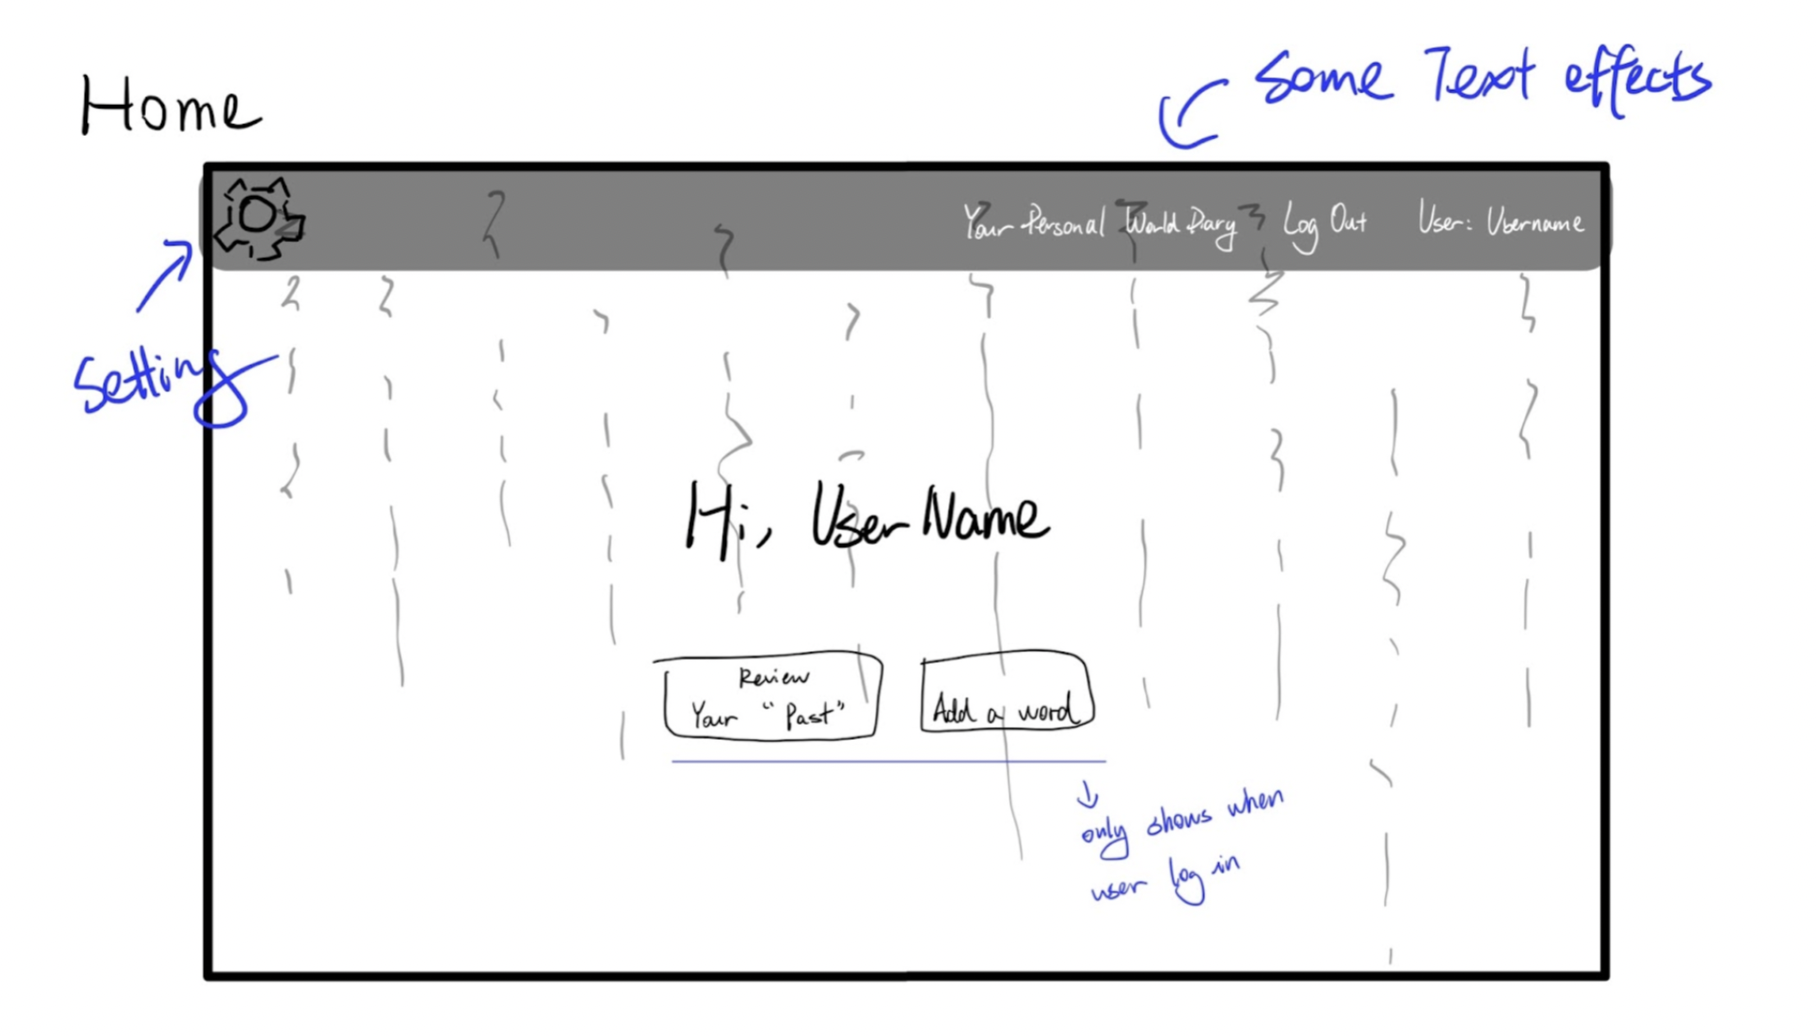 Home
Some Text effects
Your Personal World Diary
Log Out
User: Username
Setting
Hi, User Name
Review
Your "Past"
Add a word
only shows when
user log in